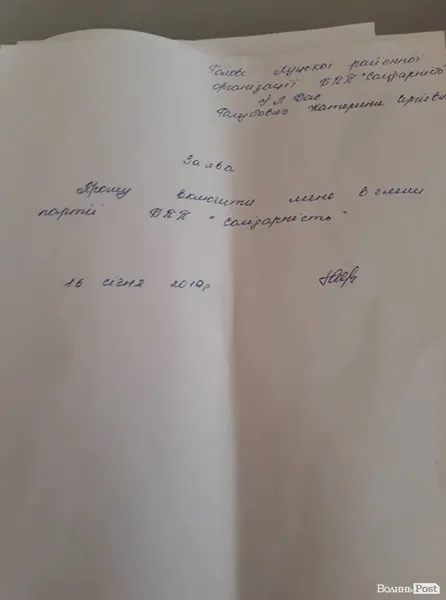 Голові Луцької районної
організації БПП "Солідарність
Голубович Катерини Сергіївн
Заява
Прошу виключити мене з членів
партії БПП "Солідарність"
16 січня
ВолиньPost